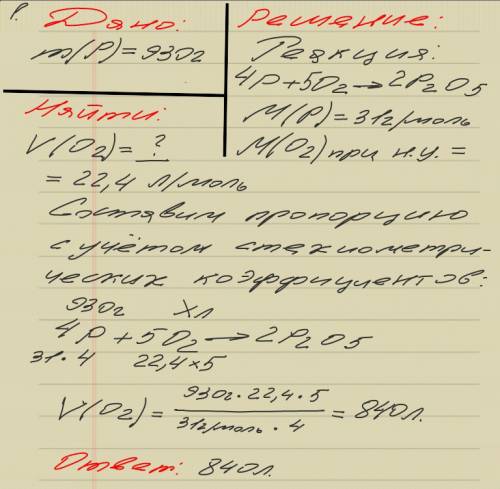 1.
Дано:
m(P) = 930г
Найти:
V(O2) = ?
Решение:
Реакция:
4P + 5O2 → 2P2O5
M(P) = 31г/моль
M(O2) при н.у. =
= 22,4 л/моль
Составим пропорцию
с учётом стехиометри-
ческих коэффициентов:
930г Xл
4P + 5O2 → 2P2O5
31·4 22,4×5
V(O2) = 930г·22,4·5 / 31г/моль·4 = 840л.
Ответ: 840л.